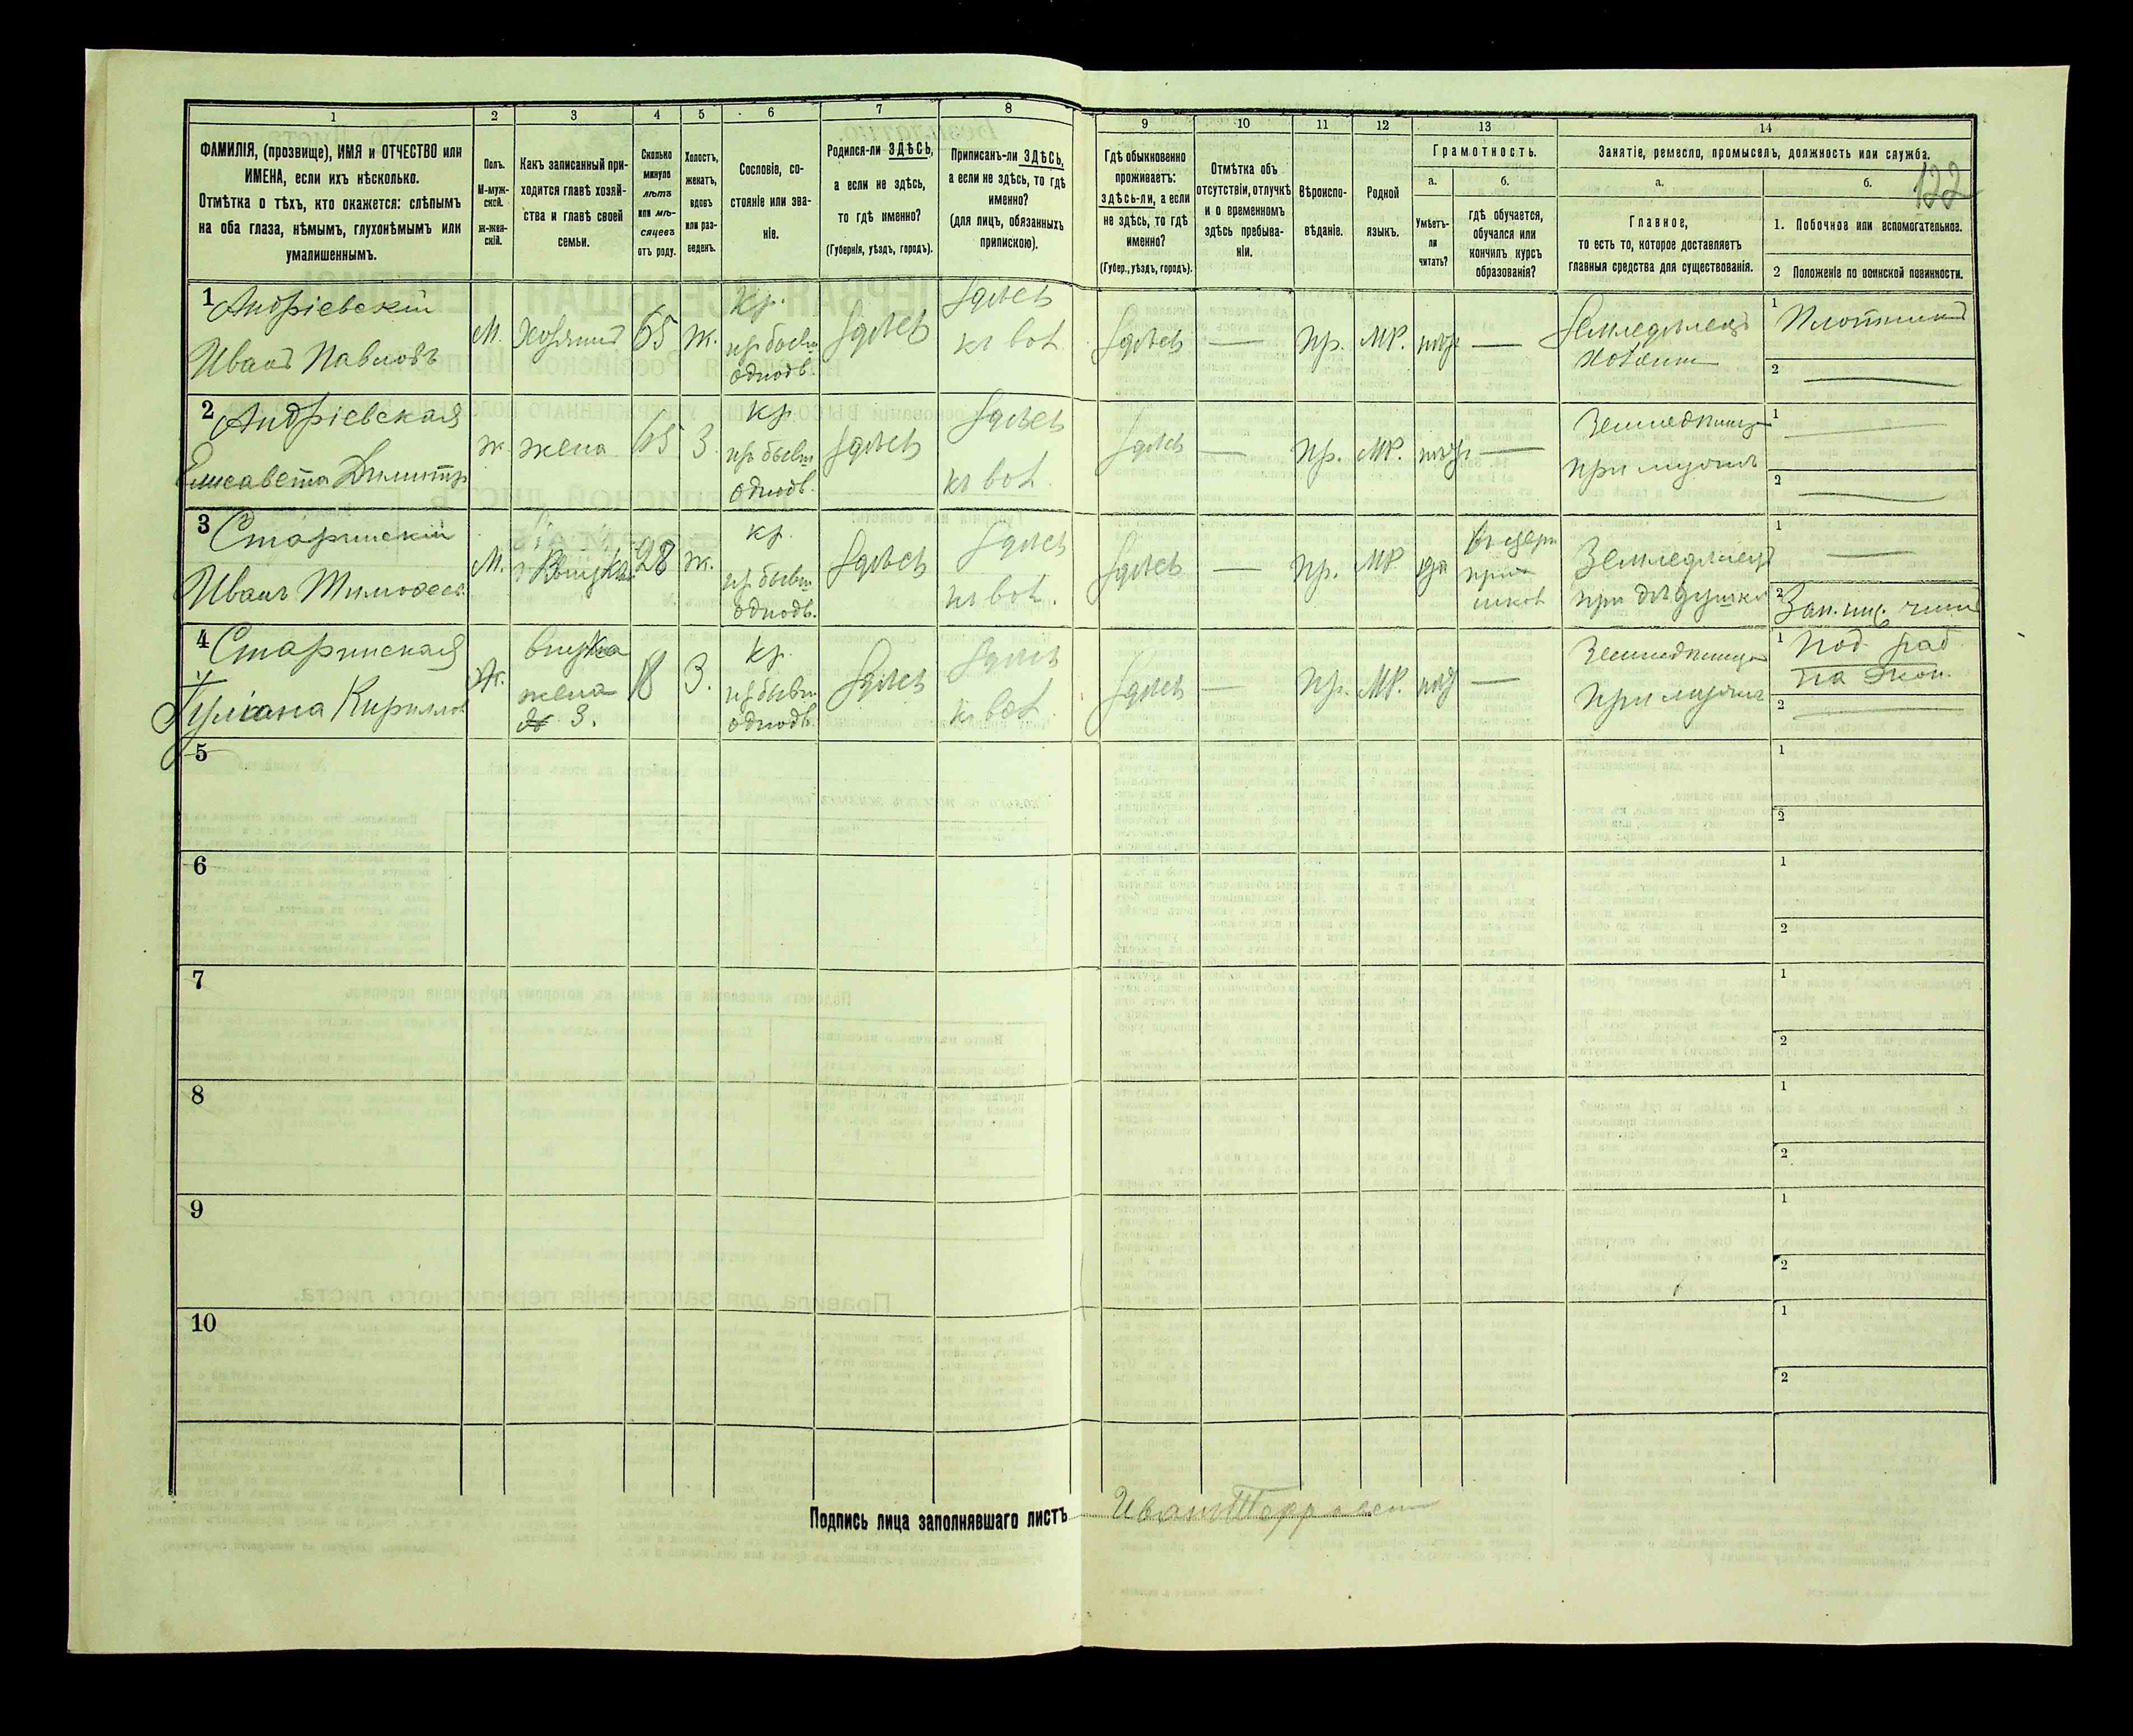 1
2
3
4
5
6
7
8
9
10
11
12
13
14
ФАМИЛІЯ, (прозвище), ИМЯ и ОТЧЕСТВО или
ИМЕНА, если ихъ нѣсколько.
Отмѣтка о тѣхъ, кто окажется: слѣпымъ
на оба глаза, нѣмымъ, глухонѣмымъ или
умалишеннымъ.
Полъ.
М-муж-
ской.
ж-жен-
скій.
Какъ записанный при-
ходится главѣ хозяй-
ства и главѣ своей
семьи.
Сколько
минуло
лѣтъ
или мѣ-
сяцевъ
отъ роду.
Холостъ,
женатъ,
вдовъ
или раз-
веденъ.
Сословіе, со-
стояніе или зва-
ніе.
Родился-ли ЗДѢСЬ,
а если не здѣсь,
то гдѣ именно?
(Губернія, уѣздъ, городъ).
Приписанъ-ли ЗДѢСЬ,
а если не здѣсь, то гдѣ
именно?
(для лицъ, обязанныхъ
припискою).
Гдѣ обыкновенно
проживаетъ:
здѣсь-ли, а если
не здѣсь, то гдѣ
именно?
(Губер., уѣздъ, городъ).
Отмѣтка объ
отсутствіи, отлучкѣ
и о временномъ
здѣсь пребыва-
ніи.
Вѣроиспо-
вѣданіе.
Родной
языкъ.
Грамотность.
а.
Умѣетъ-
ли
читать?
б.
гдѣ обучается,
обучался или
кончилъ курсъ
образованія?
Занятіе, ремесло, промыселъ, должность или служба.
а.
Главное,
то есть то, которое доставляетъ
главныя средства для существованія.
б.
122
1. Побочное или вспомогательное.
2 Положеніе по воинской повинности.
1 Андріевскій
Иванъ Павловъ
М.
Хозяинъ
65
ж.
Кр.
из бывш
однодв.
здѣсь
здѣсь
здѣсь
—
Пр.
МР.
—
Земледѣлецъ
хозяин
1 Плотникъ
2 —
2 Андріевская
Елисавета Димитр
ж.
жена
65
З.
кр.
из бывш
однодв.
здѣсь
здѣсь
здѣсь
—
Пр.
МР.
—
при мужѣ
1 —
2 —
3
Иванъ Тимоѳеев
М.
28
ж.
кр.
из бывш
однодв.
здѣсь
здѣсь
здѣсь
—
Пр.
МР.
да
Земледѣлецъ
при дѣдушкѣ
1 —
2
4
Кириллов
ж.
внука
жена
3.
18
З.
кр.
из бывш
однодв.
здѣсь
здѣсь
здѣсь
—
Пр.
МР.
—
при мужѣ
1 Под. раб
на экон.
2 —
5
1
2
6
1
2
7
1
2
8
1
2
9
1
2
10
1
2
Подпись лица заполнявшаго листъ Иван